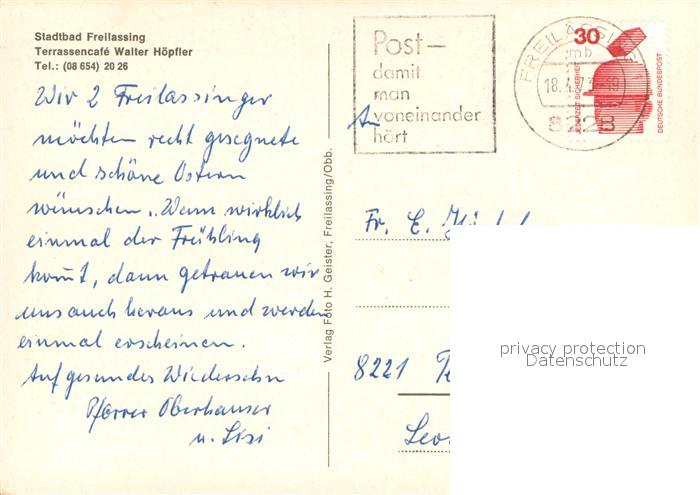 Stadtbad Freilassing
Terrassencafé Walter Höpfler
Tel.: (08 654) 20 26
Wir 2 Freilassinger
möchten recht gesegnete
und schöne Ostern
wünschen. Wenn wirklich
einmal der Frühling
kommt, dann getrauen wir
uns auch heraus und werden
einmal erscheinen.
Auf gesundes Wiedersehn
Pfarrer Oberhauser
u. Sisi
Verlag Foto H. Geister, Freilassing/Obb.
Post –
damit
man
voneinander
hört
FREILASSING
mb
18.4.
8228
30
JEDERZEIT SICHERHEIT
DEUTSCHE BUNDESPOST
An
Fr. E.
8221
privacy protection
Datenschutz